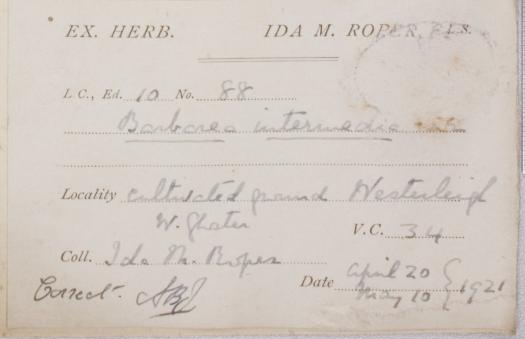 EX. HERB. IDA M. ROPER, F.L.S.
L C., Ed. 10 No. 88
Barbarea intermedia
Locality cultivated ground Westerleigh
W. Gloster
V.C. 34
Coll. Ida M. Roper
Date April 20
May 10 } 1921
Correct.